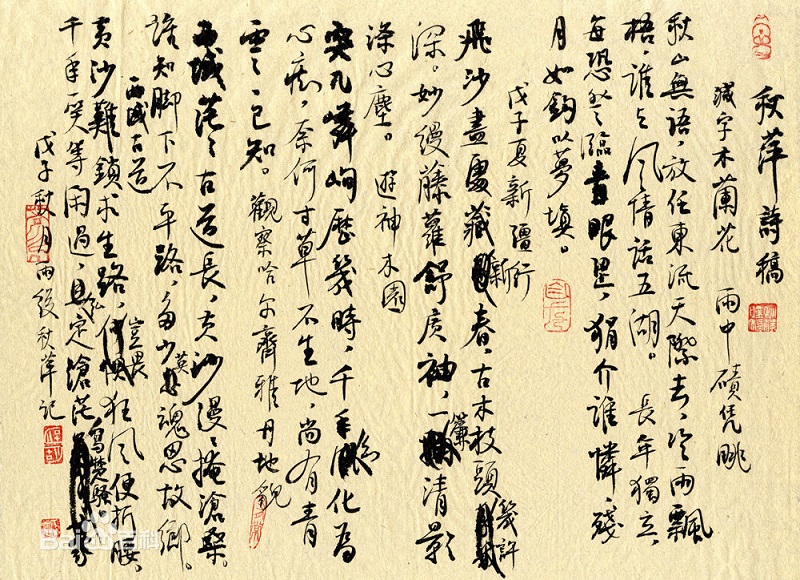 秋萍詩稿
減字木蘭花　雨中磧凭眺
秋山無語，放任東流天際去，冷雨飄
梧，誰與風情話五湖。長年獨立，
每恐登臨青眼里，狷介誰憐，殘
月如鉤以夢填。
戊子夏新疆行
飛沙盡處藏新春，古木枝頭幾許
深。妙縵藤蘿舒廣袖，一簾清影
滌心塵。遊神木園
突兀嶙峋歷幾時，千年化為
心痴，奈何寸草不生地，尚有青
雲已知。觀察哈尔齊雅丹地貌
西域茫茫古道長，黄沙漫漫掩滄桑。
誰知脚下不平路，多少英魂思故鄉。
西域古道
黄沙難鎖求生路，豈畏狂風便折腰。
千年一笑等閑過，定滄茫寫楚騷
戊子秋月雨後秋萍記
Baidu百科